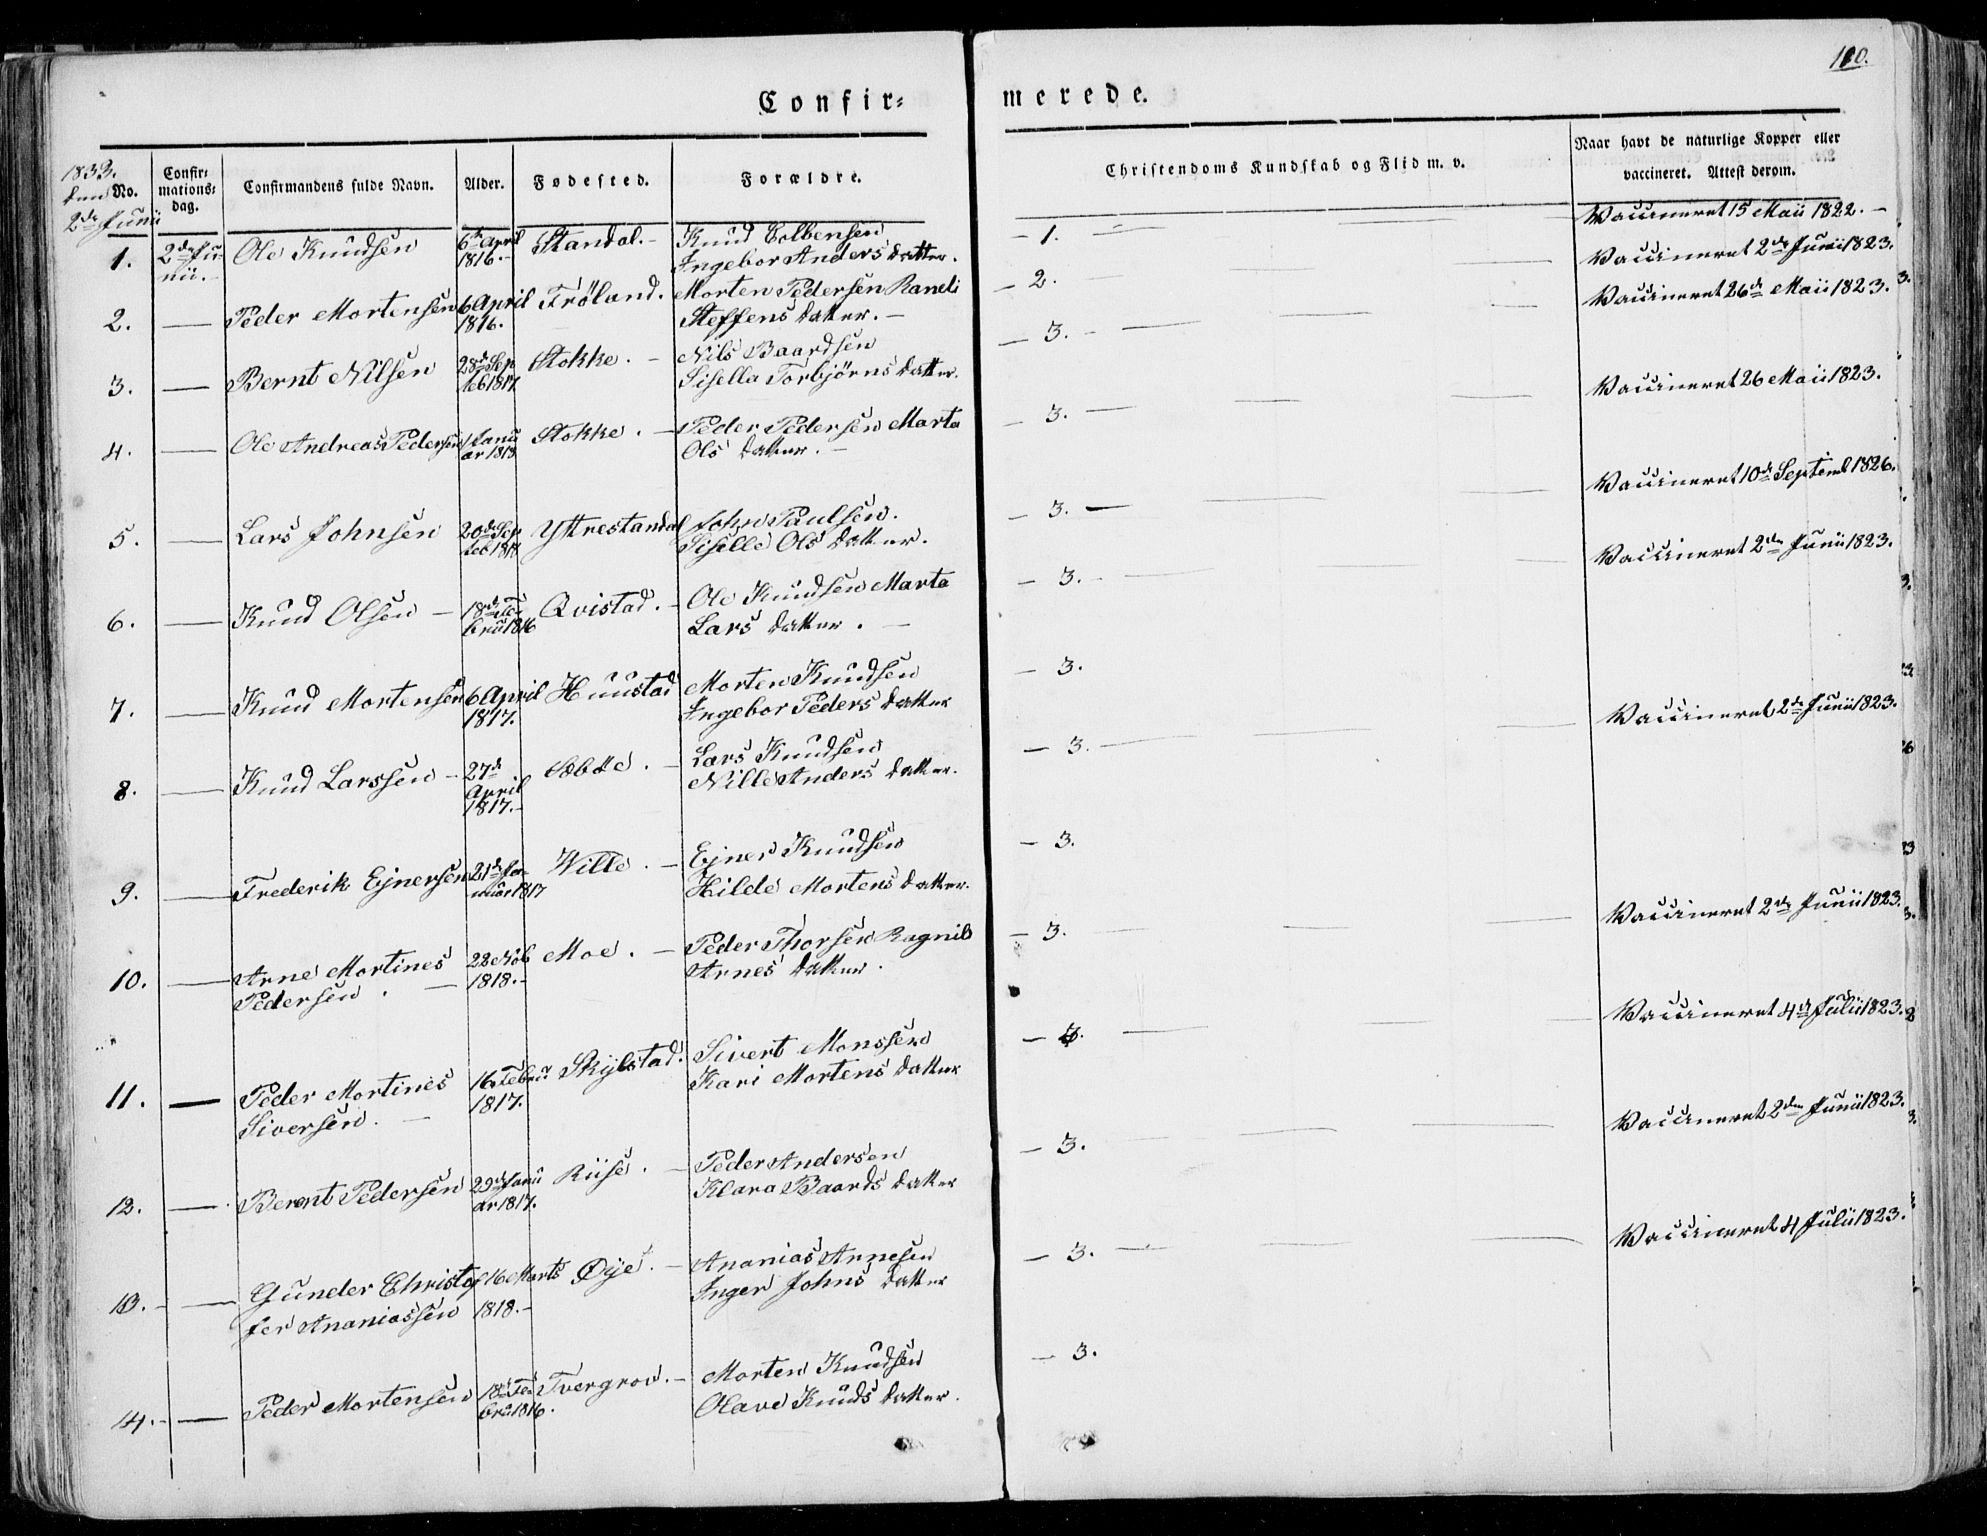 110.
Confir=
merede.
1833.
den
2de Junii
No.
Confir=
mations=
dag.
Confirmandens fulde Navn.
Alder.
Fødested.
Forældre.
Christendoms Kundskab og Flid m. v.
Naar havt de naturlige Kopper eller
vaccineret. Attest derom.
1. 2de Ju= Ole Knudsen 6te April Standal. - Knud - 1. Vaccineret 15 Maii 1822. -
nii. - 1816. - Ingebor Anders datter.
2. — Peder Mortensen 6 April Frøland. Morten Pedersen Randi - 2. Vaccineret 2de Junii 1823.
1816. Steffens datter. -
3. — Bernt Nilsen 28de Sep Stokke. - Nils Baardsen - 3. - Vaccineret 26de Maii 1823.
teb 1817. Sisella Torbjørns datter.
4. — Ole Andreas Pedersen 1 Janu Stokke. - Peder Pedersen Marta - 3. Vaccineret 26 Maii 1823.
ar 1818 Ols datter. -
5. — Lars Johnsen 20de Sep Yttrestandal John Paulsen. - 3. - Vaccineret 10de Septemb 1826.
teb 1817 Siselle Ols datter.
6. — Knud Olsen - 18de Fe Qvistad. - Ole Knudsen Marta - 3. - Vaccineret 2den Junii 1823.
bru 1816 Lars datter. -
7. — Knud Mortensen 6 April Huustad Morten Knudsen - 3.
1817. Ingebor Peders datter
8. — Knud Larssen - 27de Sæbøe. - Lars Knudsen - 3. - Vaccineret 2de Junii 1823.
April Nille Anders datter.
1817. -
9. — Frederik Ejnersen 21de Ja= Wille. - Ejner Knudsen - 3.
nuar 1817 Hilde Mortens datter.
10. — Arne Mortines 22 Nob Moe. - Peder Thorsen Ragnild - 3. Vaccineret 2de Junii 1823.
Pedersen. - 1818. - Arnes datter.
11. — Peder Mortines 16 Febru Skylstad. Sivert Monssen Vaccineret 4de Julii 1823.
Siversen. - 1817. Kari Mortens datter
12. — Berent Pedersen 29de Janu Riise. - Peder Andersen - 3. Vaccineret 2den Junii 1823.
ar 1817. Klara Baards datter
13. - — Gunder Christof 16 Marts Øye. - Ananias Arnesen - 3. - Vaccineret 4 Julii 1823.
fer Ananiassen 1818. - Inger Johns datter
14. - — Peder Mortensen 18de Fe Tvergrov. - Morten Knudsen - 3.
bru 1816. Olave Knuds datter.